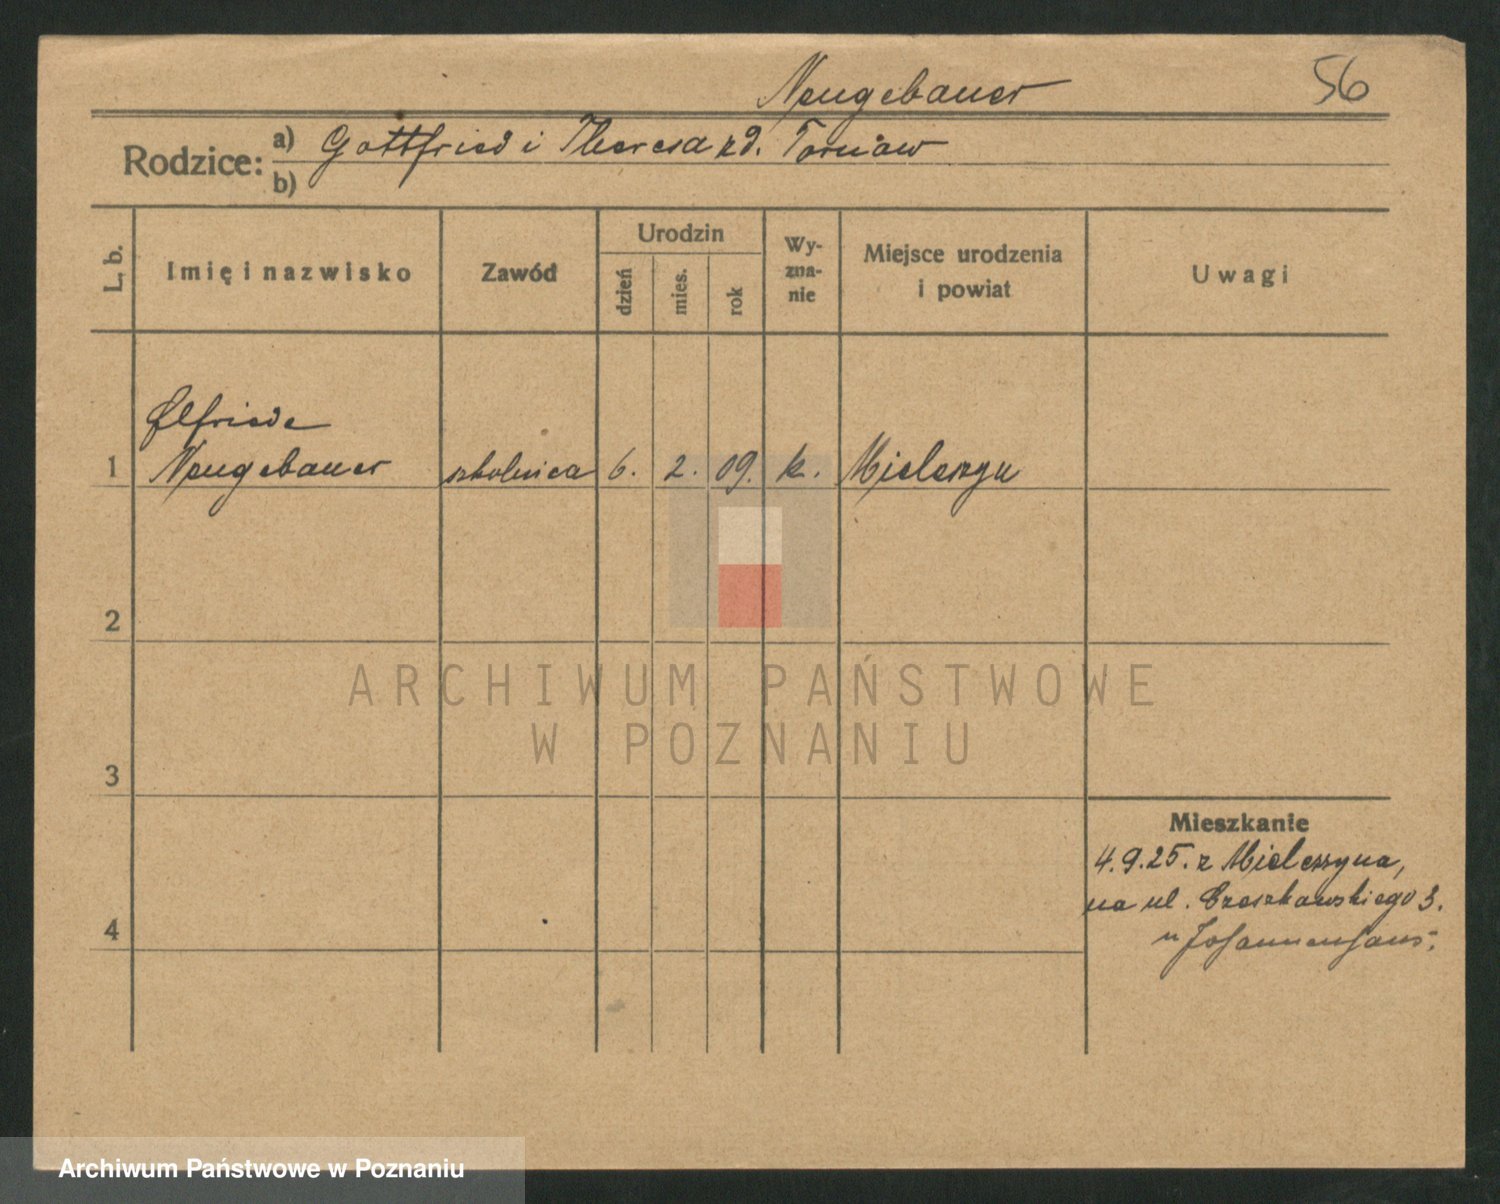 Neugebauer
56
Rodzice:
a) Gottfried i Theresa zd. Tornow
b)
L. b.
Imię i nazwisko
Zawód
Urodzin
dzień
mies.
rok
Wy-
zna-
nie
Miejsce urodzenia
i powiat
Uwagi
Elfriede
1 Neugebauer szkolnica 6. 2. 09. k. Mieleszyn
2
ARCHIWUM PAŃSTWOWE
W POZNANIU
3
Mieszkanie
4.9.25. z Mieleszyna,
na ul. Czeszkowskiego 3.
u Johannenhaus.
4
Archiwum Państwowe w Poznaniu